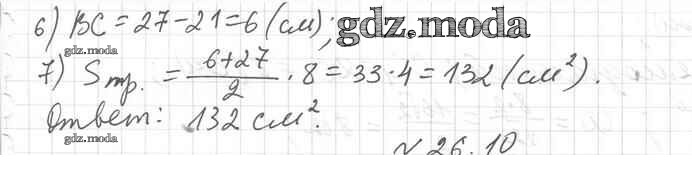 6) BC = 27 - 21 = 6 (см);
gdz.moda
gdz.moda
7) Sтр. = 6+27/2 · 8 = 33 · 4 = 132 (см²).
Ответ: 132 см².
gdz.moda
№ 26.10